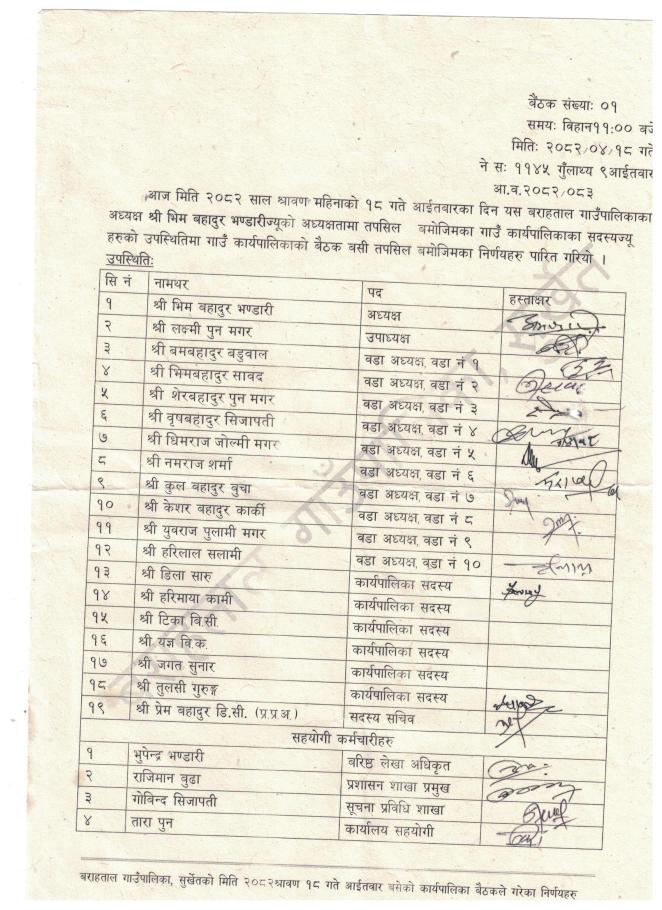 बैठक संख्याः ०१
समयः बिहान११:०० बजे
मितिः २०८२/०४/१८ गते
ने सः ११४५ गुँलाथ्य ९आईतवार
आ.व.२०८२/०८३
आज मिति २०८२ साल श्रावण महिनाको १८ गते आईतवारका दिन यस बराहताल गाउँपालिकाका
अध्यक्ष श्री भिम बहादुर भण्डारीज्यूको अध्यक्षतामा तपसिल बमोजिमका गाउँ कार्यपालिकाका सदस्यज्यू
हरुको उपस्थितिमा गाउँ कार्यपालिकाको बैठक वसी तपसिल बमोजिमका निर्णयहरु पारित गरियो ।
उपस्थितिः
सि नं नामथर पद हस्ताक्षर
१ श्री भिम बहादुर भण्डारी अध्यक्ष
२ श्री लक्ष्मी पुन मगर उपाध्यक्ष
३ श्री बमबहादुर बडुवाल वडा अध्यक्ष, वडा नं १
४ श्री भिमबहादुर सावद वडा अध्यक्ष, वडा नं २
५ श्री शेरबहादुर पुन मगर वडा अध्यक्ष, वडा नं ३
६ श्री वृषबहादुर सिजापती वडा अध्यक्ष, वडा नं ४
७ श्री धिमराज जोल्मी मगर वडा अध्यक्ष, वडा नं ५
८ श्री नमराज शर्मा वडा अध्यक्ष, वडा नं ६
९ श्री कुल बहादुर बुचा वडा अध्यक्ष, वडा नं ७
१० श्री केशर बहादुर कार्की वडा अध्यक्ष, वडा नं ८
११ श्री युवराज पुलामी मगर वडा अध्यक्ष, वडा नं ९
१२ श्री हरिलाल सलामी वडा अध्यक्ष, वडा नं १०
१३ श्री डिला सारु कार्यपालिका सदस्य
१४ श्री हरिमाया कामी कार्यपालिका सदस्य
१५ श्री टिका बि.सी कार्यपालिका सदस्य
१६ श्री यज्ञ बि.क. कार्यपालिका सदस्य
१७ श्री जगत सुनार कार्यपालिका सदस्य
१८ श्री तुलसी गुरुङ्ग कार्यपालिका सदस्य
१९ श्री प्रेम बहादुर डि.सी. (प्र.प्र.अ.) सदस्य सचिव
सहयोगी कर्मचारीहरु
१ भुपेन्द्र भण्डारी बरिष्ठ लेखा अधिकृत
२ राजिमान वुढा प्रशासन शाखा प्रमुख
३ गोविन्द सिजापती सूचना प्रविधि शाखा
४ तारा पुन कार्यालय सहयोगी
बराहताल गाउँपालिका, सुर्खेत
बराहताल गाउँपालिका, सुर्खेतको मिति २०८२श्रावण १८ गते आईतवार बसेको कार्यपालिका बैठकले गरेका निर्णयहरु